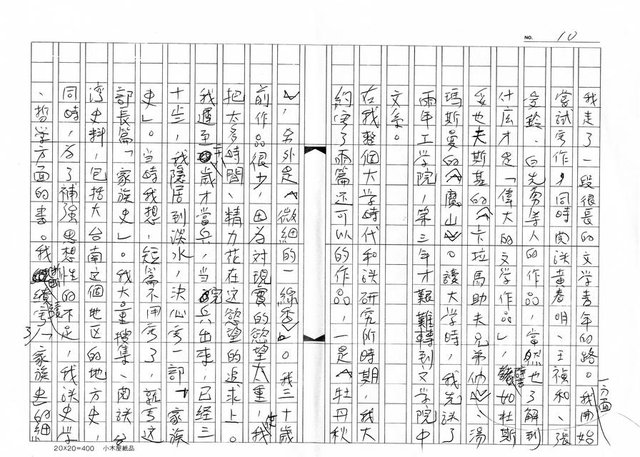 NO. 10
我走了一段很長的文学青年的路。我開始
一方面
嘗試寫作，同時閱讀黃春明、王禎和、張
愛玲、白先勇等人的作品，當然也了解到
什庅才是「偉大的文学作品」，譬如杜斯
妥也夫斯基的《卡拉馬助夫兄弟們》、湯
瑪斯曼的《魔山》。讀大學時，我先讀了
兩年工学院，第三年才艱難轉到文学院中
文系。
在我整個大学時代和讀研究所時期，我大
約寫了兩篇还可以的作品，一是《牡丹秋
》，另外是《微細的一線香》。我三十歲
前作品很少，因為對現實的慾望太重，我使
把大多時間、精力花在这慾望的追求上。
我遲至 歲才當兵，当完兵出來，已經三
十岁，我隱居到淡水，決心寫一部「家族
史」。当時我想，短篇不用寫了，就寫这
部長篇「家族史」。我大量搜集、閱讀台
湾史料，包括大台南这個地区的地方史，
同時，为了補强思想性的不足，我讀史学
、哲学方面的書。我 續寫了「家族史的細
20X20=400 小木屋紙品